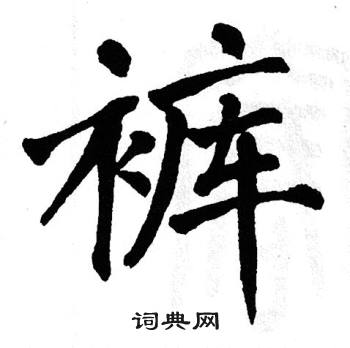 裤
词典网